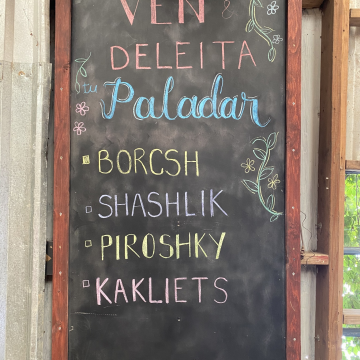 VEN &
DELEITA
tu
Paladar
BORCSH
SHASHLIK
PIROSHKY
KAKLIETS